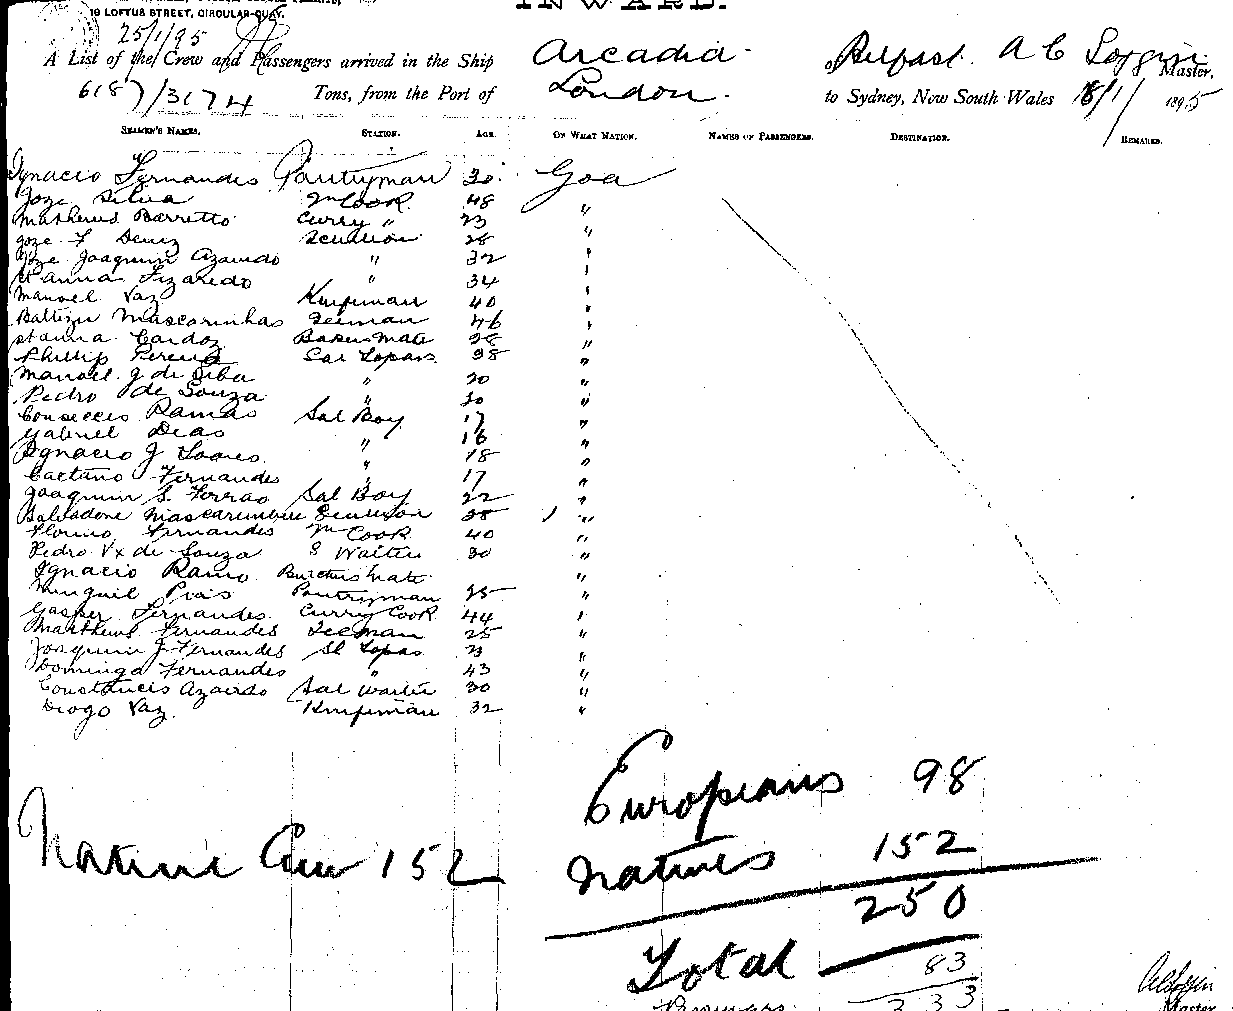 19 LOFTUS STREET, CIRCULAR-QUAY.
INWARD.
25/1/95
A List of the Crew and Passengers arrived in the Ship Arcadia of Belfast. A C Loggin Master,
6187/3174 Tons, from the Port of London. to Sydney, New South Wales 18/1/1895
SEAMEN'S NAMES. STATION. AGE. OF WHAT NATION. NAMES OF PASSENGERS. DESTINATION. REMARKS.
Ignacio Fernandes Pantryman 30 Goa
Joze Silva Cook 48 "
Mathews Barretto Curry " 23 "
Joze F Deniz Scullion 28 "
Joze Joaquim Azavedo " 32 "
Figaredo " 34 "
Manoel Vaz 40 "
Mascarinhas 46 "
Cardoz Bakers Mate 38 "
Phillip Pereira Sal Topas 38 "
Manoel J de Silva " 20 "
Pedro de Souza " 20 "
Ramas Sal Boy 17 "
Gabriel Dias 16 "
Ignacio J Soares " 18 "
Caetano Fernandes " 17 "
Joaquim S. Ferrao Sal Boy 22 "
Salvadore Mascarenhas Scullion 28 "
Florino Fernandes Cook 40 "
Pedro Vx de Souza S Waiter 30 "
Ignacio Ramo Butchers Mate "
Minguil Pantryman 25 "
Gasper Fernandes Curry Cook 44 "
Matthews Fernandes 25 "
Joaquim J Fernandes Sl Topas 23 "
Dominga Fernandes " 43 "
Azavedo Sal Waiter 30 "
Diogo Vaz 32 "
Europeans 98
Native Crew 152 Natives 152
250
Total
83
333
Master